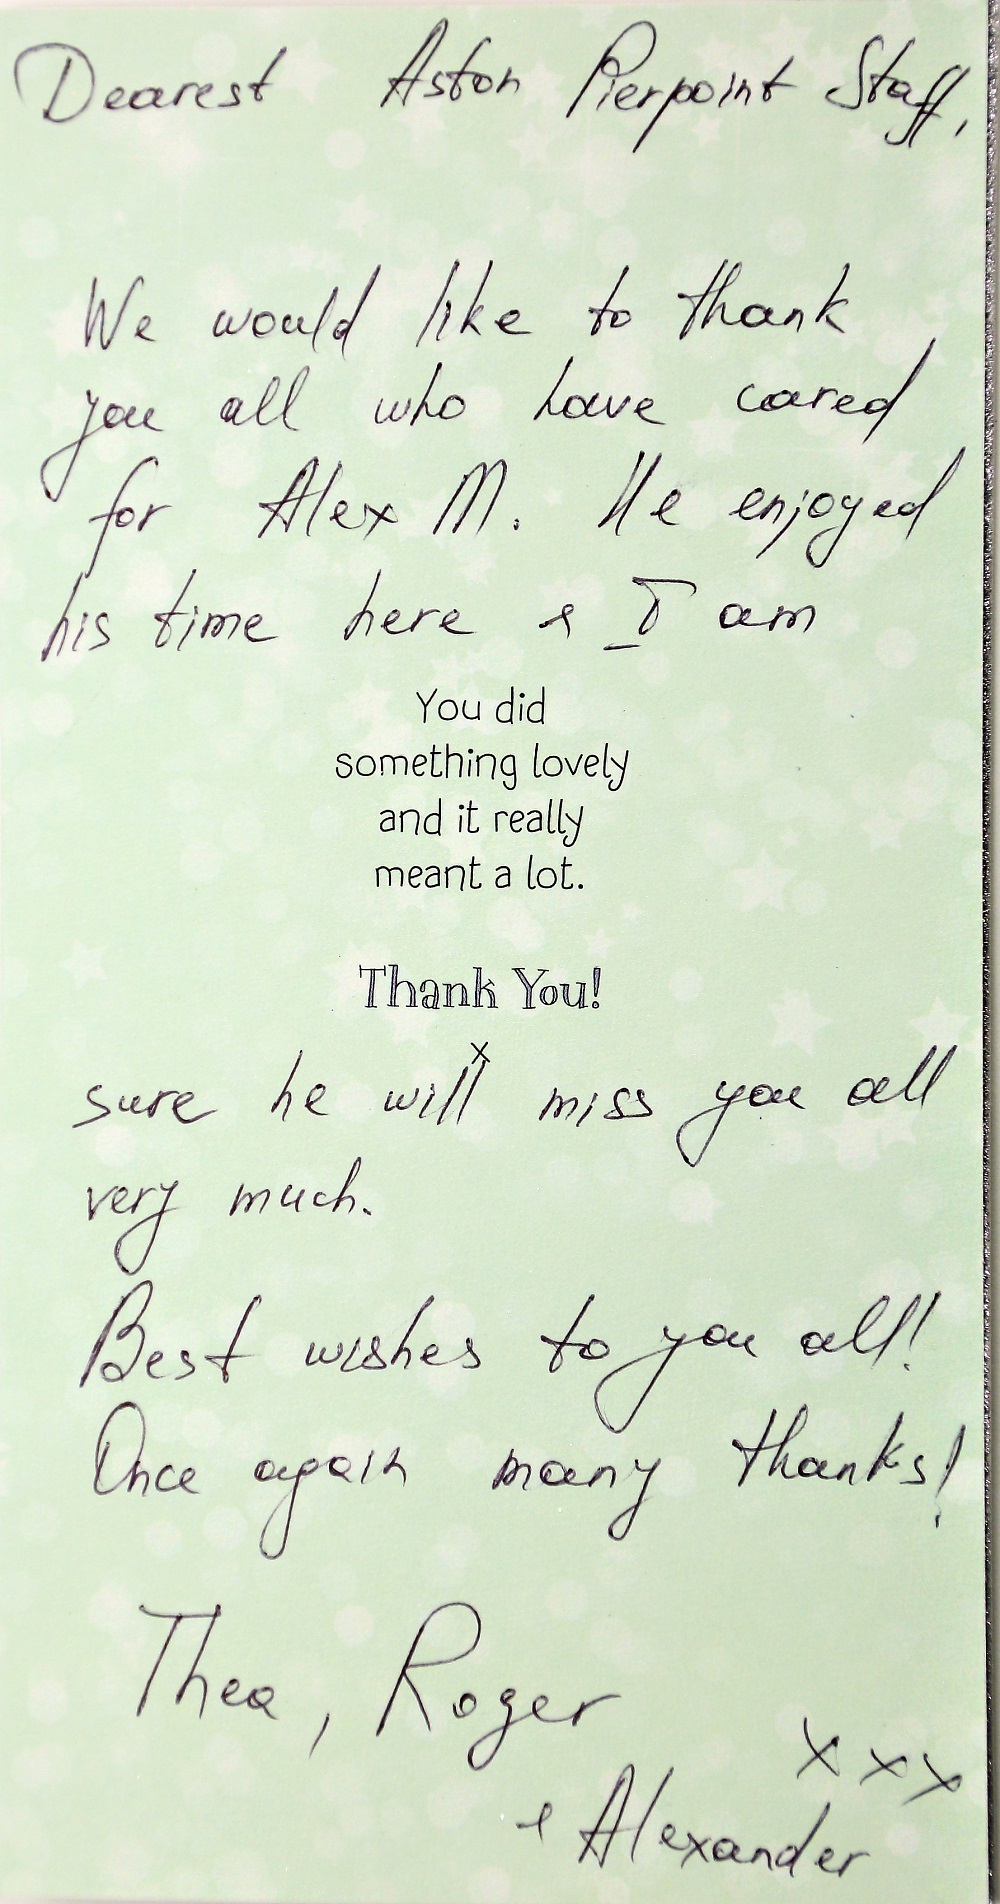 Dearest Aston Pierpoint Staff,
We would like to thank
you all who have cared
for Alex M. He enjoyed
his time here & I am
You did
something lovely
and it really
meant a lot.
Thank You!
x
sure he will miss you all
very much.
Best wishes to you all!
Once again many thanks!
Thea, Roger
x x x
& Alexander